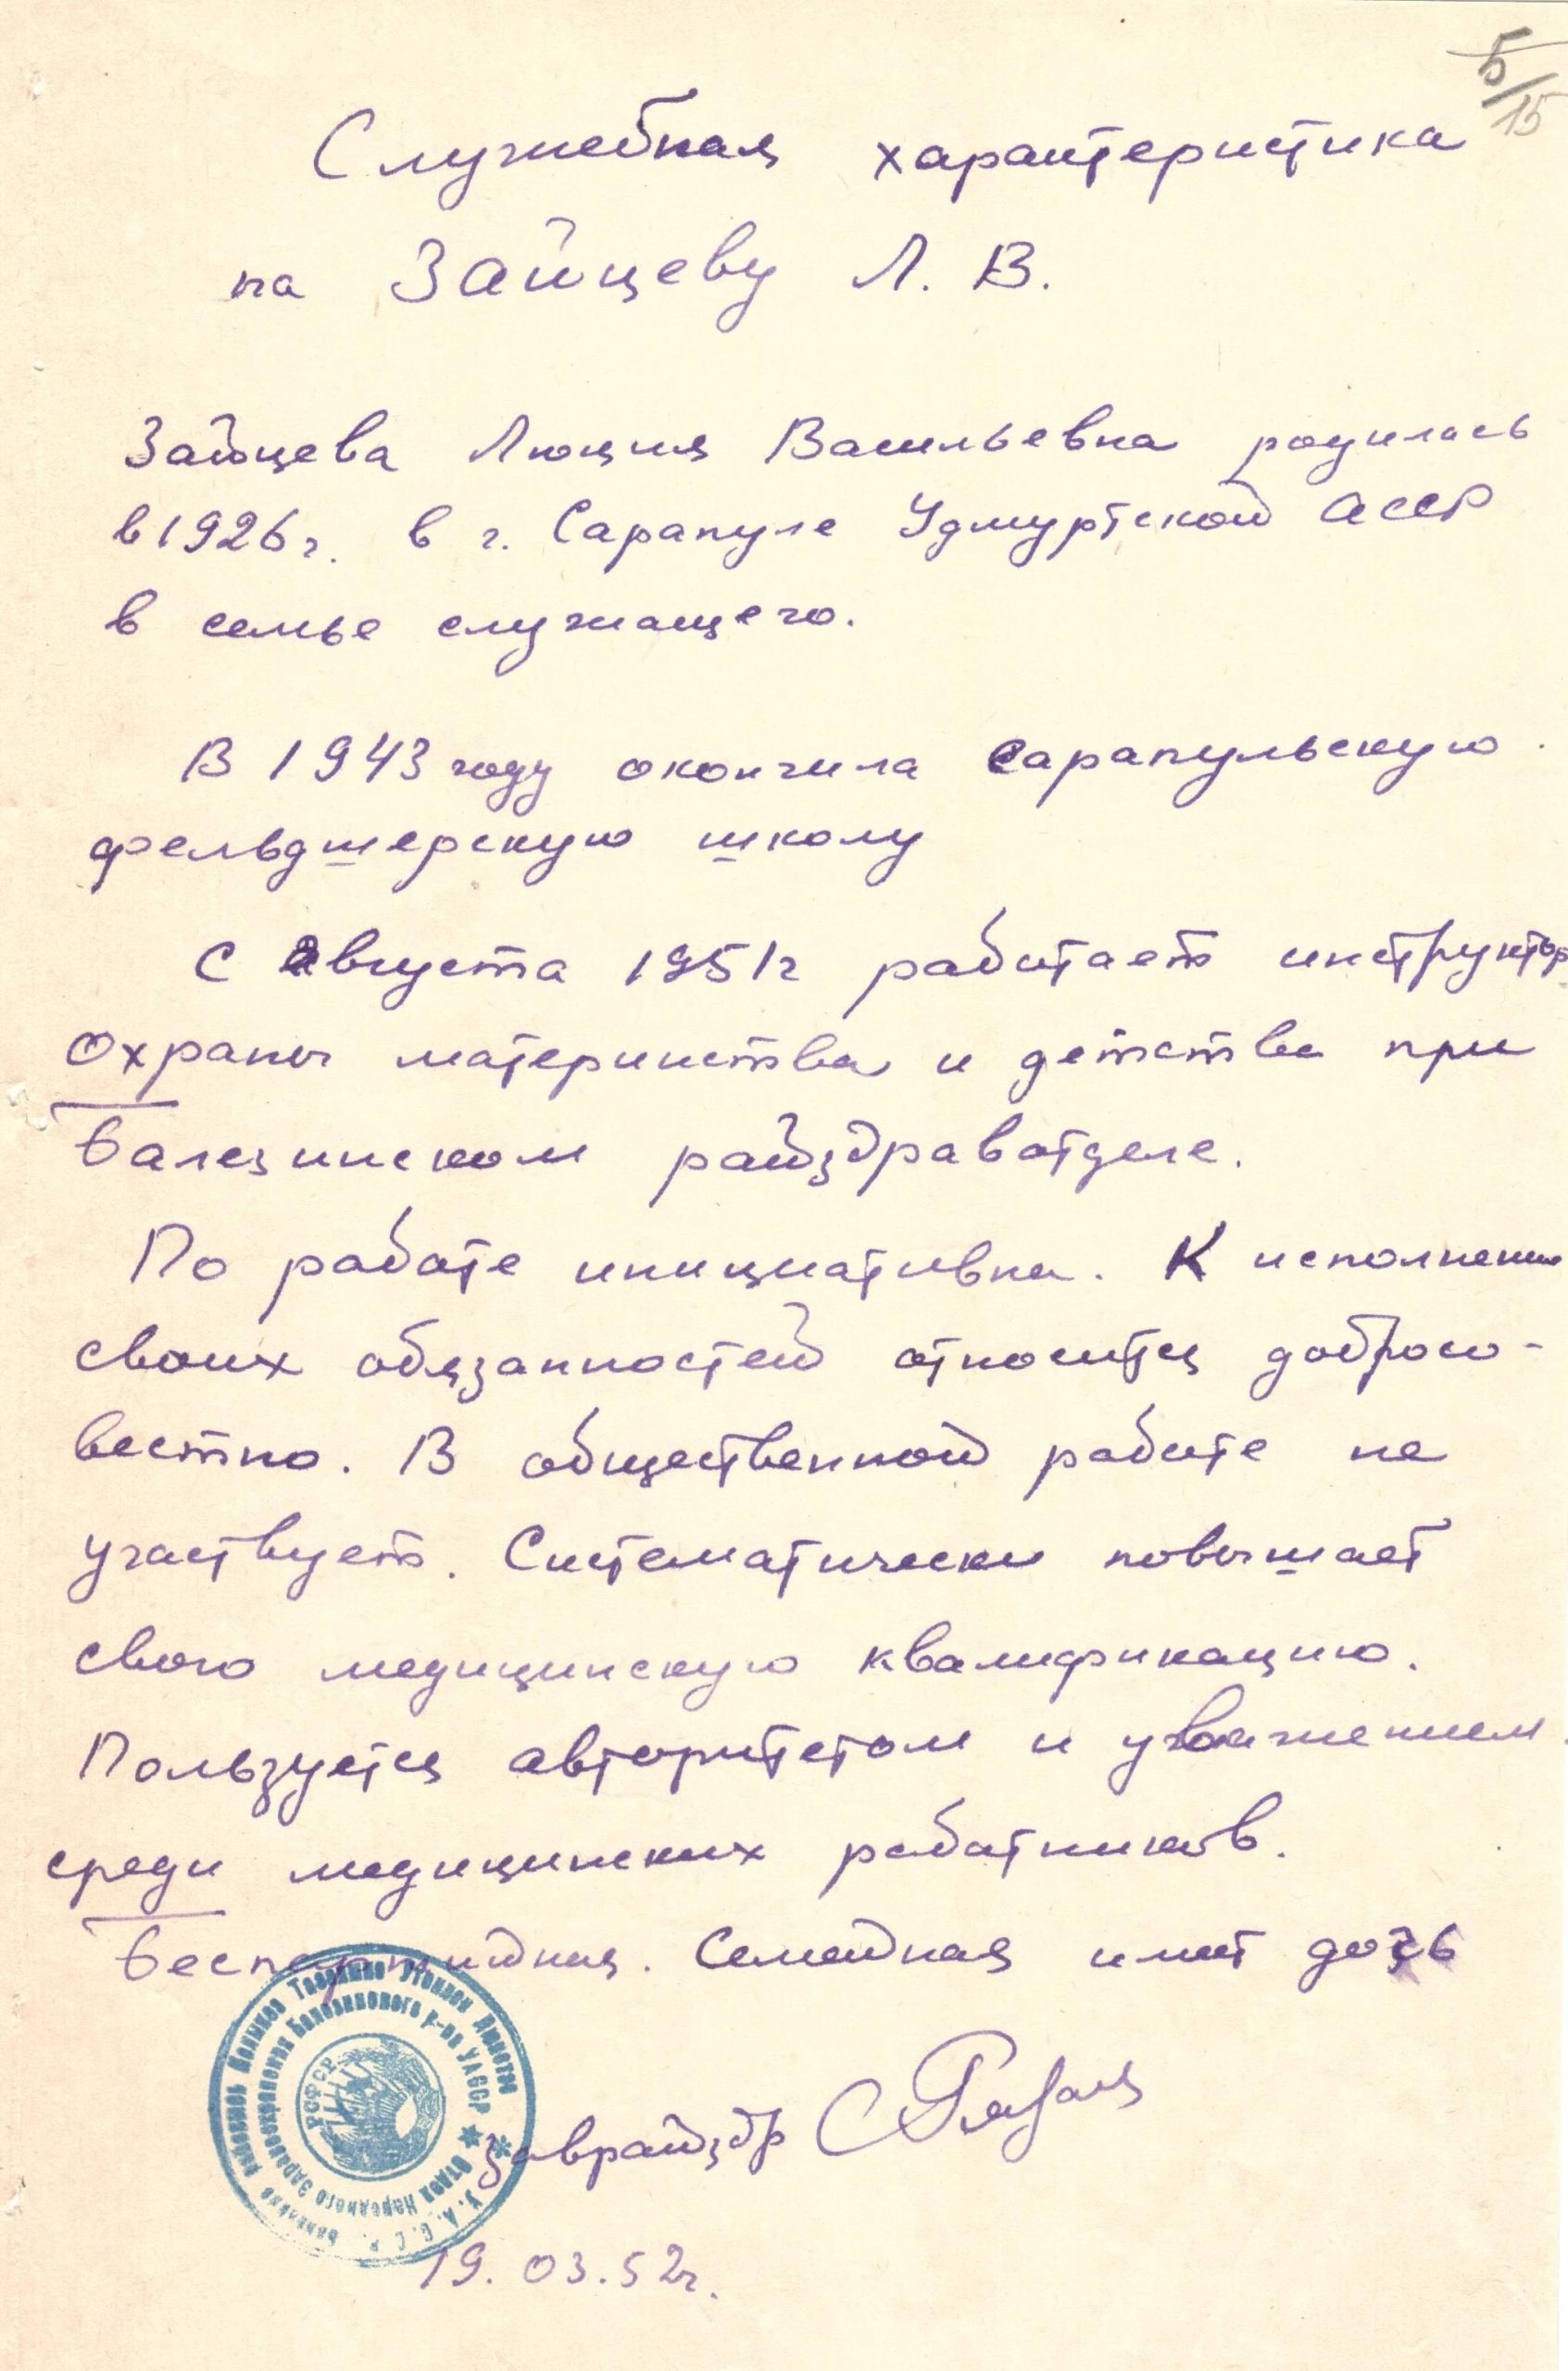 5/15
Служебная характеристика
на Зайцеву Л. В.
Зайцева Люция Васильевна родилась
в 1926 г. в г. Сарапуле Удмуртской АССР
в семье служащего.
В 1943 году окончила Сарапульскую
фельдшерскую школу
С августа 1951 г работает инструктор
охраны материнства и детства при
Балезинском райздравотделе.
По работе инициативна. К исполнению
своих обязанностей относится добросо-
вестно. В общественной работе не
участвует. Систематически повышает
свою медицинскую квалификацию.
Пользуется авторитетом и уважением
среди медицинских работников.
Беспартийная. Семейная имеет дочь
Заврайздр
РСФСР
Отдел Народного Здравоохранения Балезинского р-на УАССР
У.А.С.С.Р.
19.03.52г.